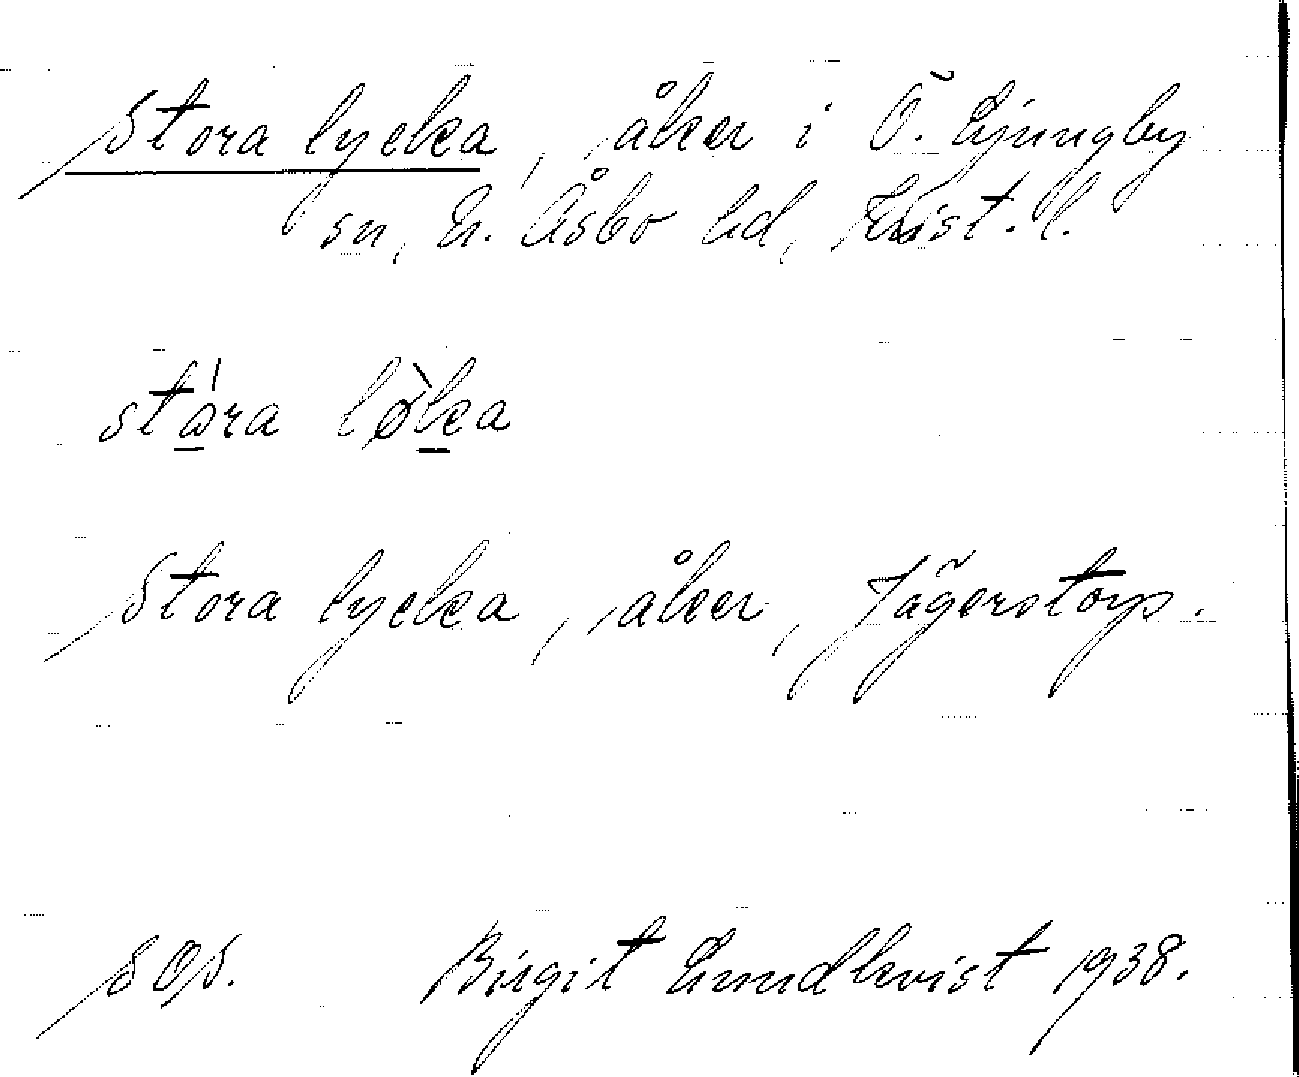 Stora lycka, åker i Ö. Ljungby
sn, N. Åsbo hd, Krist. l.
stòra løka
Stora lycka, åker, Jägerstorp.
SOS. Birgit Lundkvist 1938.